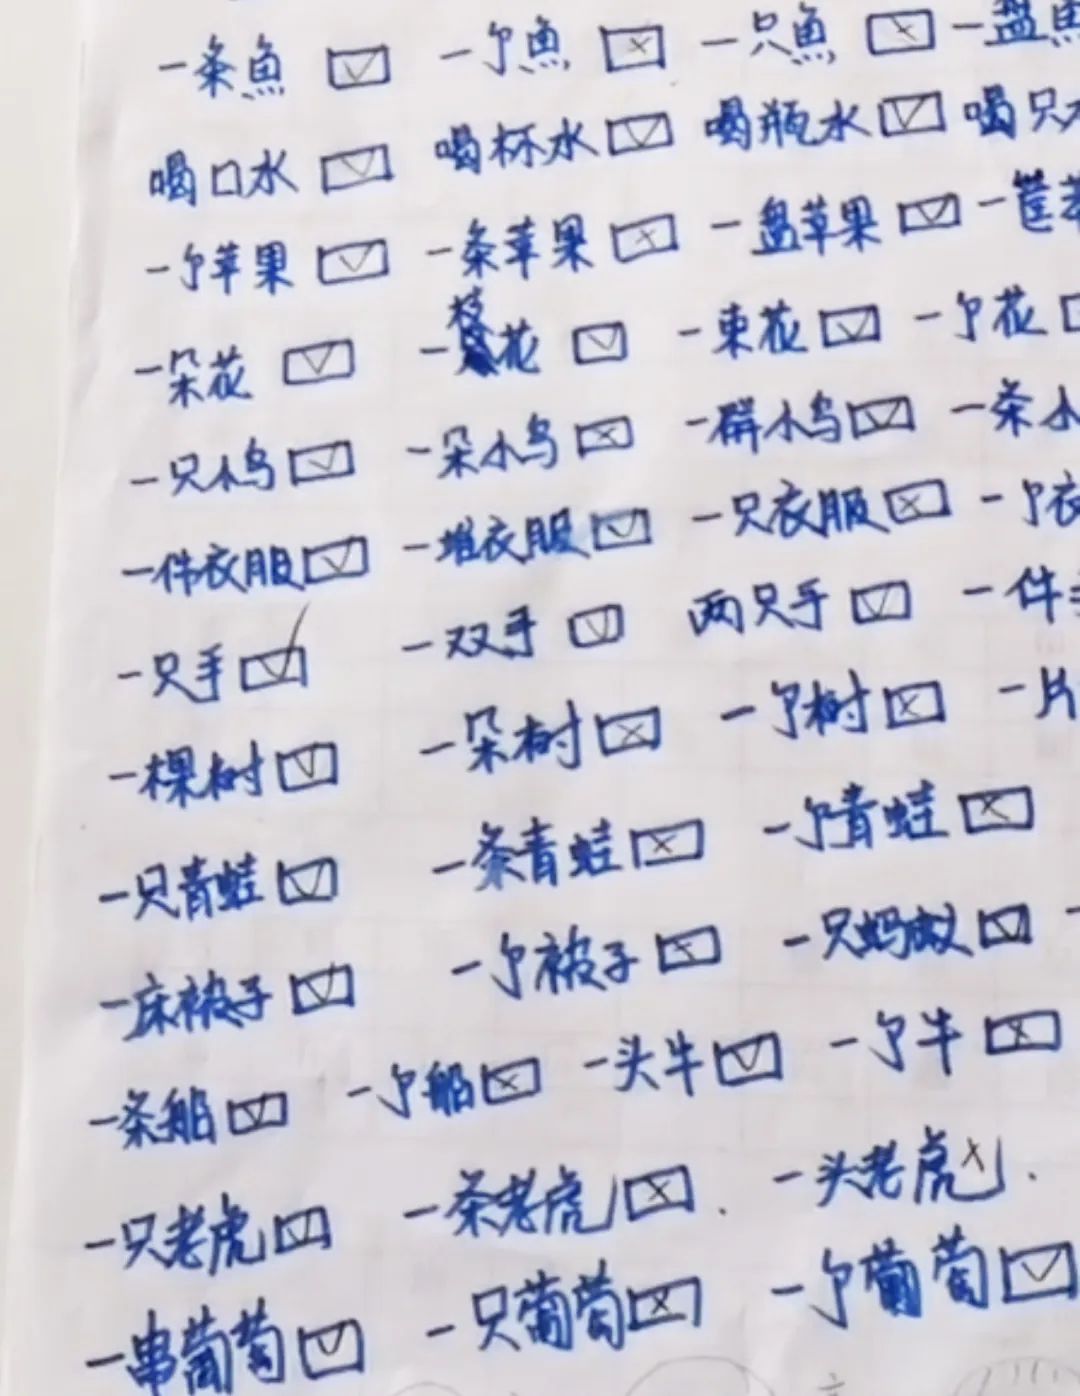 一条鱼 ☑ 一个鱼 ☒ 一只鱼 ☒ 一盘鱼
喝口水 ☑ 喝杯水 ☑ 喝瓶水 ☑ 喝只水
一个苹果 ☑ 一条苹果 ☒ 一盘苹果 ☑ 一筐苹
一朵花 ☑ 一枝花 ☑ 一束花 ☑ 一个花
一只小鸟 ☑ 一朵小鸟 ☒ 一群小鸟 ☑ 一条小
一件衣服 ☑ 一堆衣服 ☑ 一只衣服 ☒ 一个衣
一只手 ☑ 一双手 ☑ 两只手 ☑ 一件
一棵树 ☑ 一朵树 ☒ 一个树 ☒ 一片
一只青蛙 ☑ 一条青蛙 ☒ 一个青蛙 ☒
一床被子 ☑ 一个被子 ☒ 一只蚂蚁 ☑
一条船 ☑ 一个船 ☒ 一头牛 ☑ 一个牛 ☒
一只老虎 ☑ 一条老虎 ☒. 一头老虎 ×.
一串葡萄 ☑ 一只葡萄 ☒ 一个葡萄 ☑